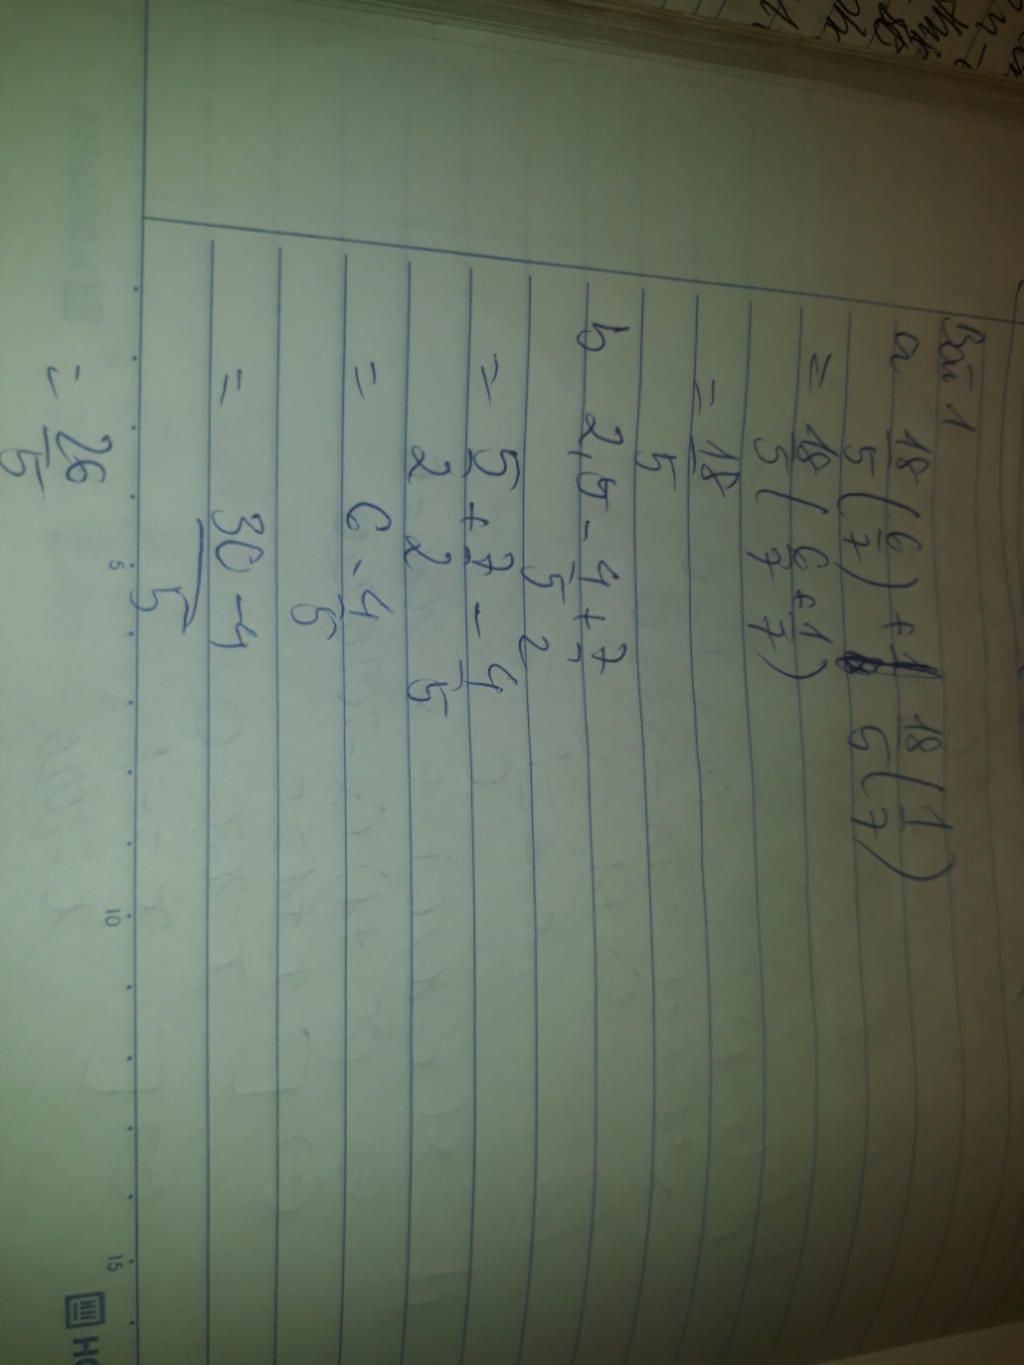 Bài 1
a 18/5 (6/7) + 18/5 (1/7)
= 18/5 (6/7 + 1/7)
= 18/5
b 2,5 - 4/5 + 7/2
= 5/2 + 7/2 - 4/5
= 6 - 4/5
= 30 - 4/5
= 26/5
5 10 15